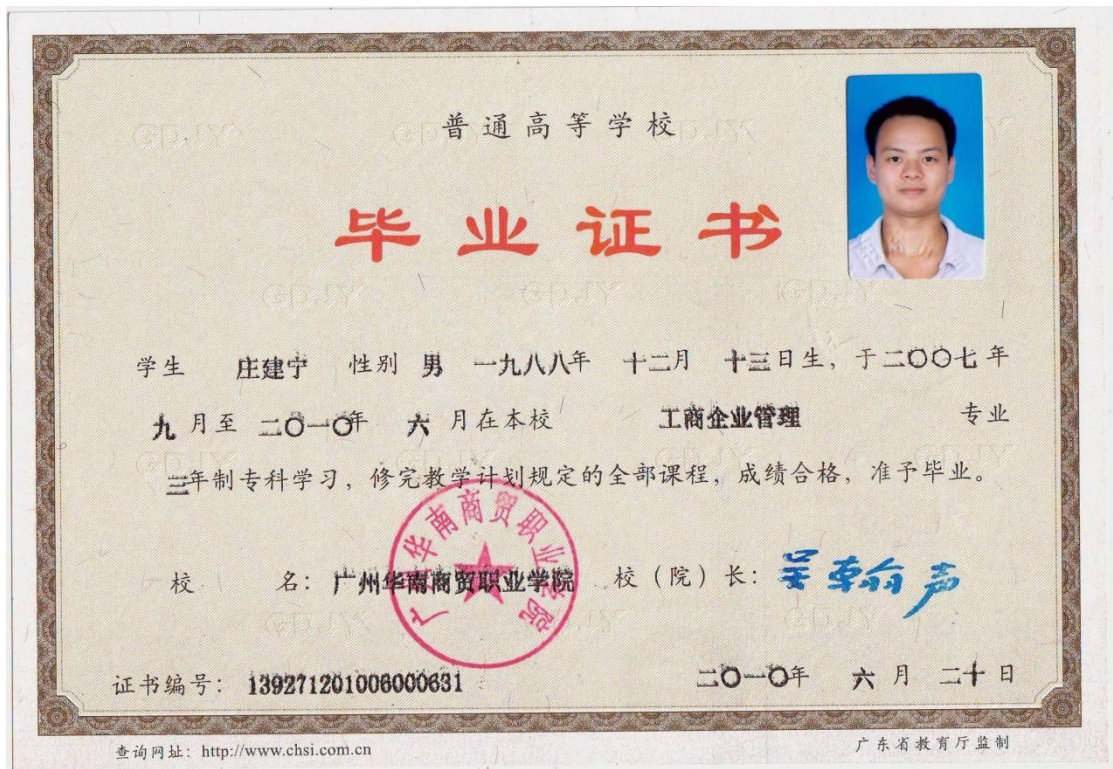 普通高等学校
毕业证书
学生 庄建宁 性别 男 一九八八年 十二月 十三日生，于二〇〇七年
九月至 二〇一〇年 六月在本校 工商企业管理 专业
三年制专科学习，修完教学计划规定的全部课程，成绩合格，准予毕业。
校 名：广州华南商贸职业学院 校（院）长：吴翰声
广州华南商贸职业学院
证书编号：139271201006000631 二〇一〇年 六月 二十日
查询网址：http://www.chsi.com.cn 广东省教育厅监制